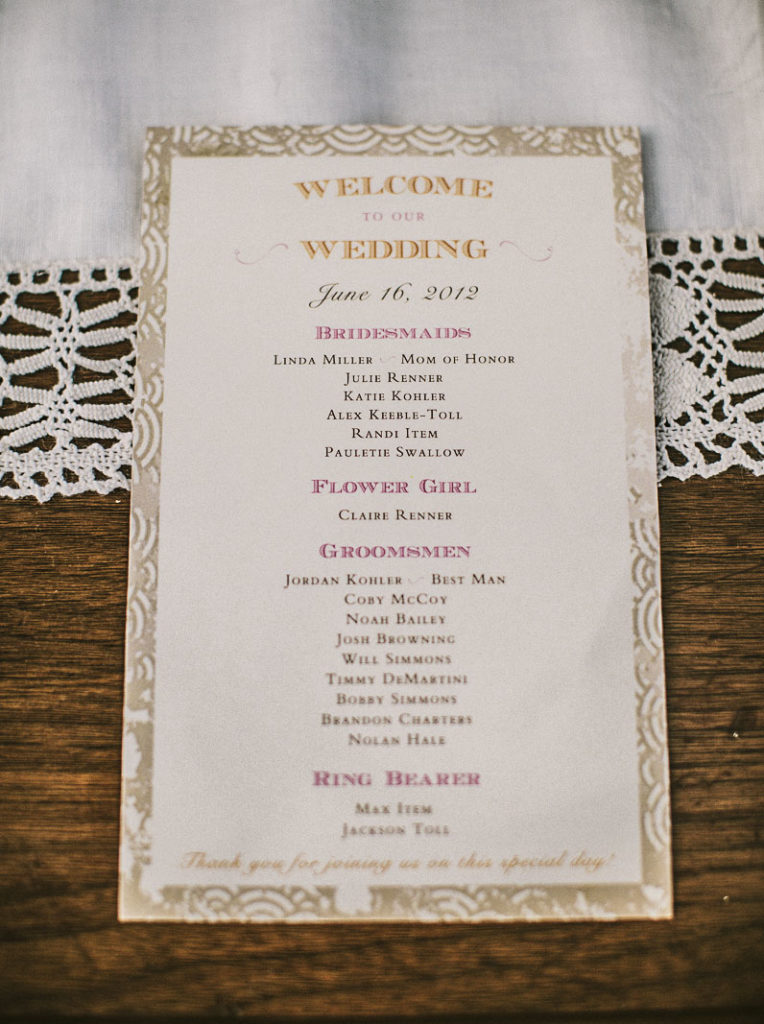 WELCOME
TO OUR
WEDDING
June 16, 2012
BRIDESMAIDS
LINDA MILLER ~ MOM OF HONOR
JULIE RENNER
KATIE KOHLER
ALEX KEEBLE-TOLL
RANDI ITEM
PAULETIE SWALLOW
FLOWER GIRL
CLAIRE RENNER
GROOMSMEN
JORDAN KOHLER ~ BEST MAN
COBY MCCOY
NOAH BAILEY
JOSH BROWNING
WILL SIMMONS
TIMMY DEMARTINI
BOBBY SIMMONS
BRANDON CHARTERS
NOLAN HALE
RING BEARER
MAX ITEM
JACKSON TOLL
Thank you for joining us on this special day!